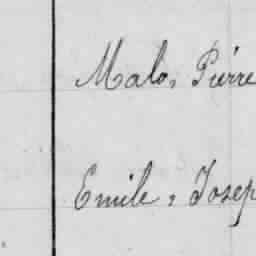 Malo, Pierre
Emile, Josep